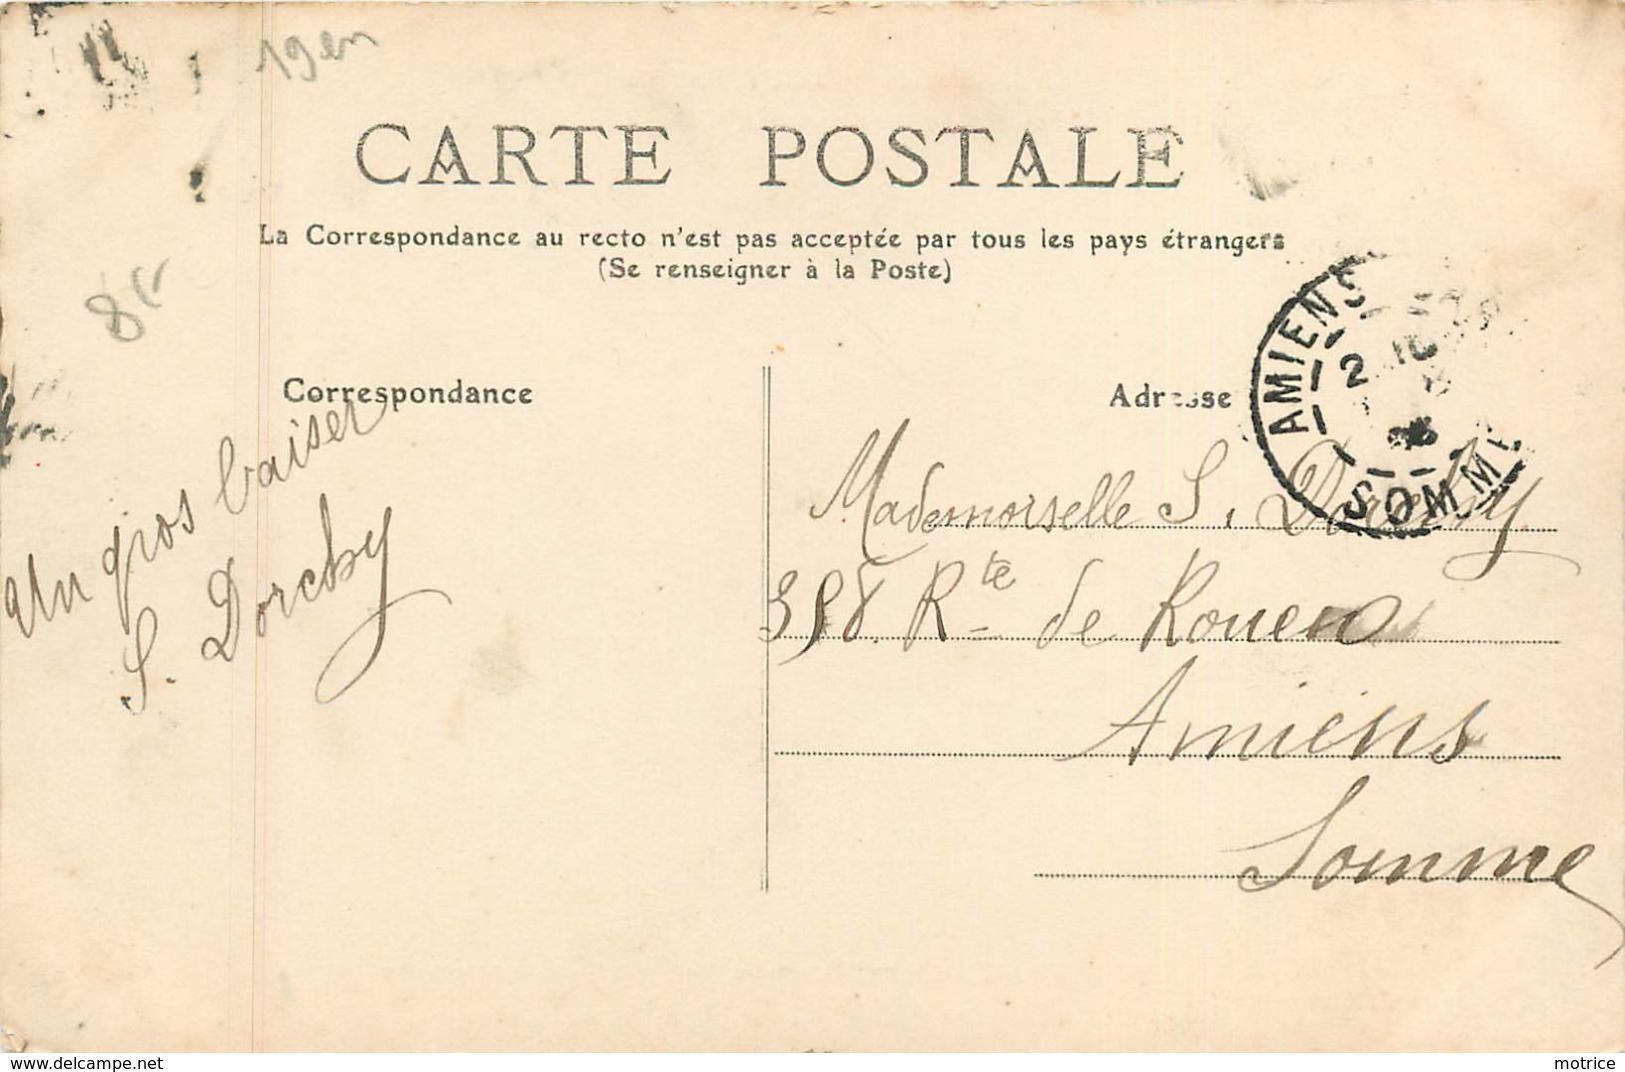 19en
CARTE POSTALE
La Correspondance au recto n'est pas acceptée par tous les pays étrangers
(Se renseigner à la Poste)
8
Correspondance
Adresse
AMIENS
2
SOMME
Un gros baiser
S. Dorchy
Mademoiselle S. Dorchy
358 Rte de Rouen
Amiens
Somme
www.delcampe.net
motrice